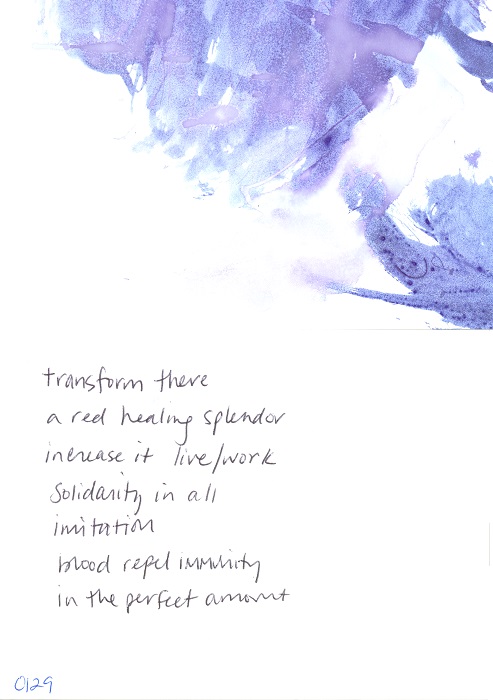 transform there
a red healing splendor
increase it live/work
solidarity in all
imitation
blood repel immunity
in the perfect amount
0129